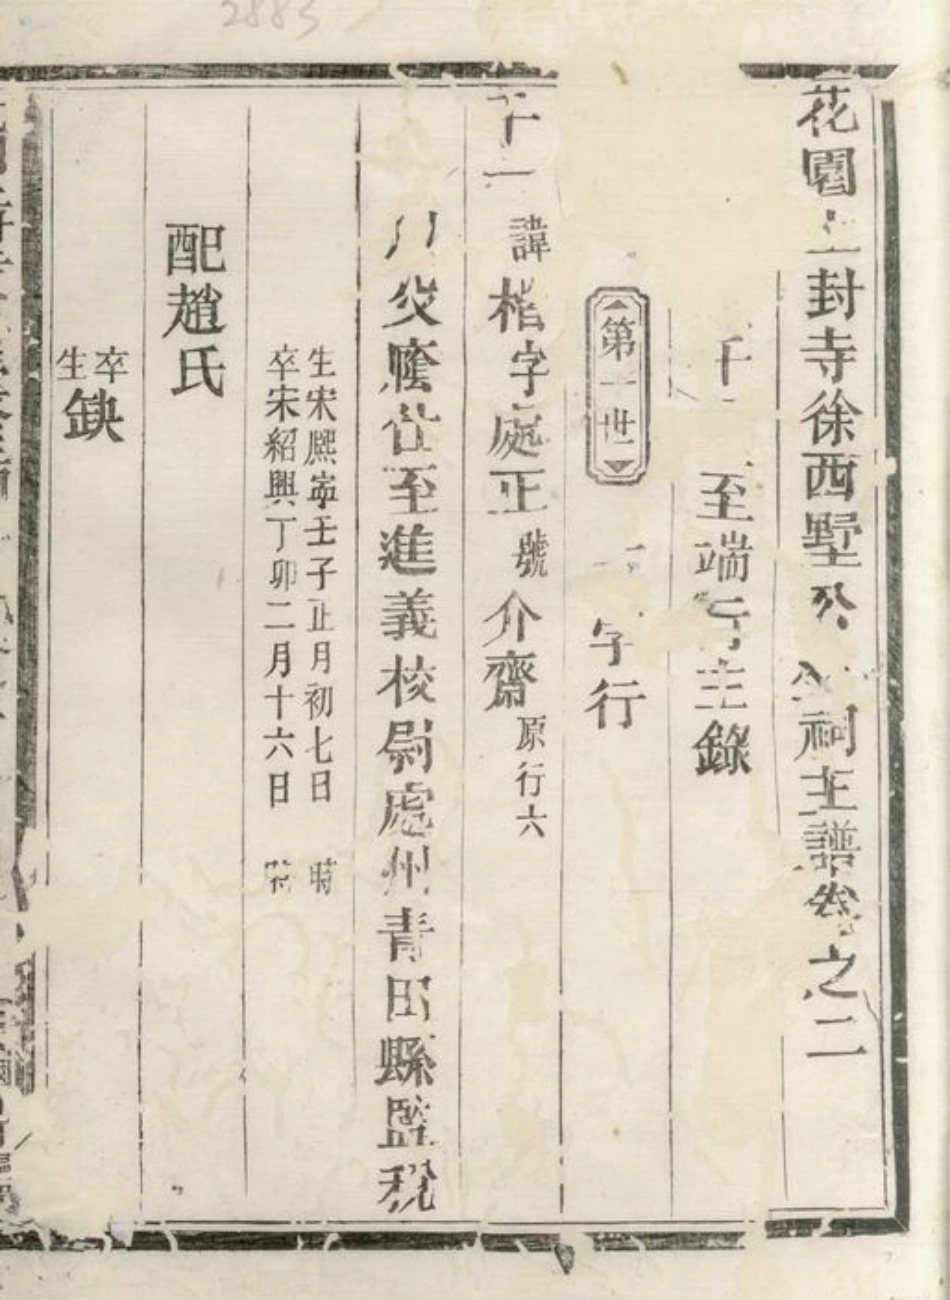 花園 封寺徐西墅公 祠主譜卷之二
千 至端 行主錄
第一世 字行
千一 諱楷字處正 號介齋 原行六
以父廕仕至進義校尉處州青田縣監稅
生宋熙寧壬子正月初七日 時
卒宋紹興丁卯二月十六日 時
配趙氏
卒
生
缺